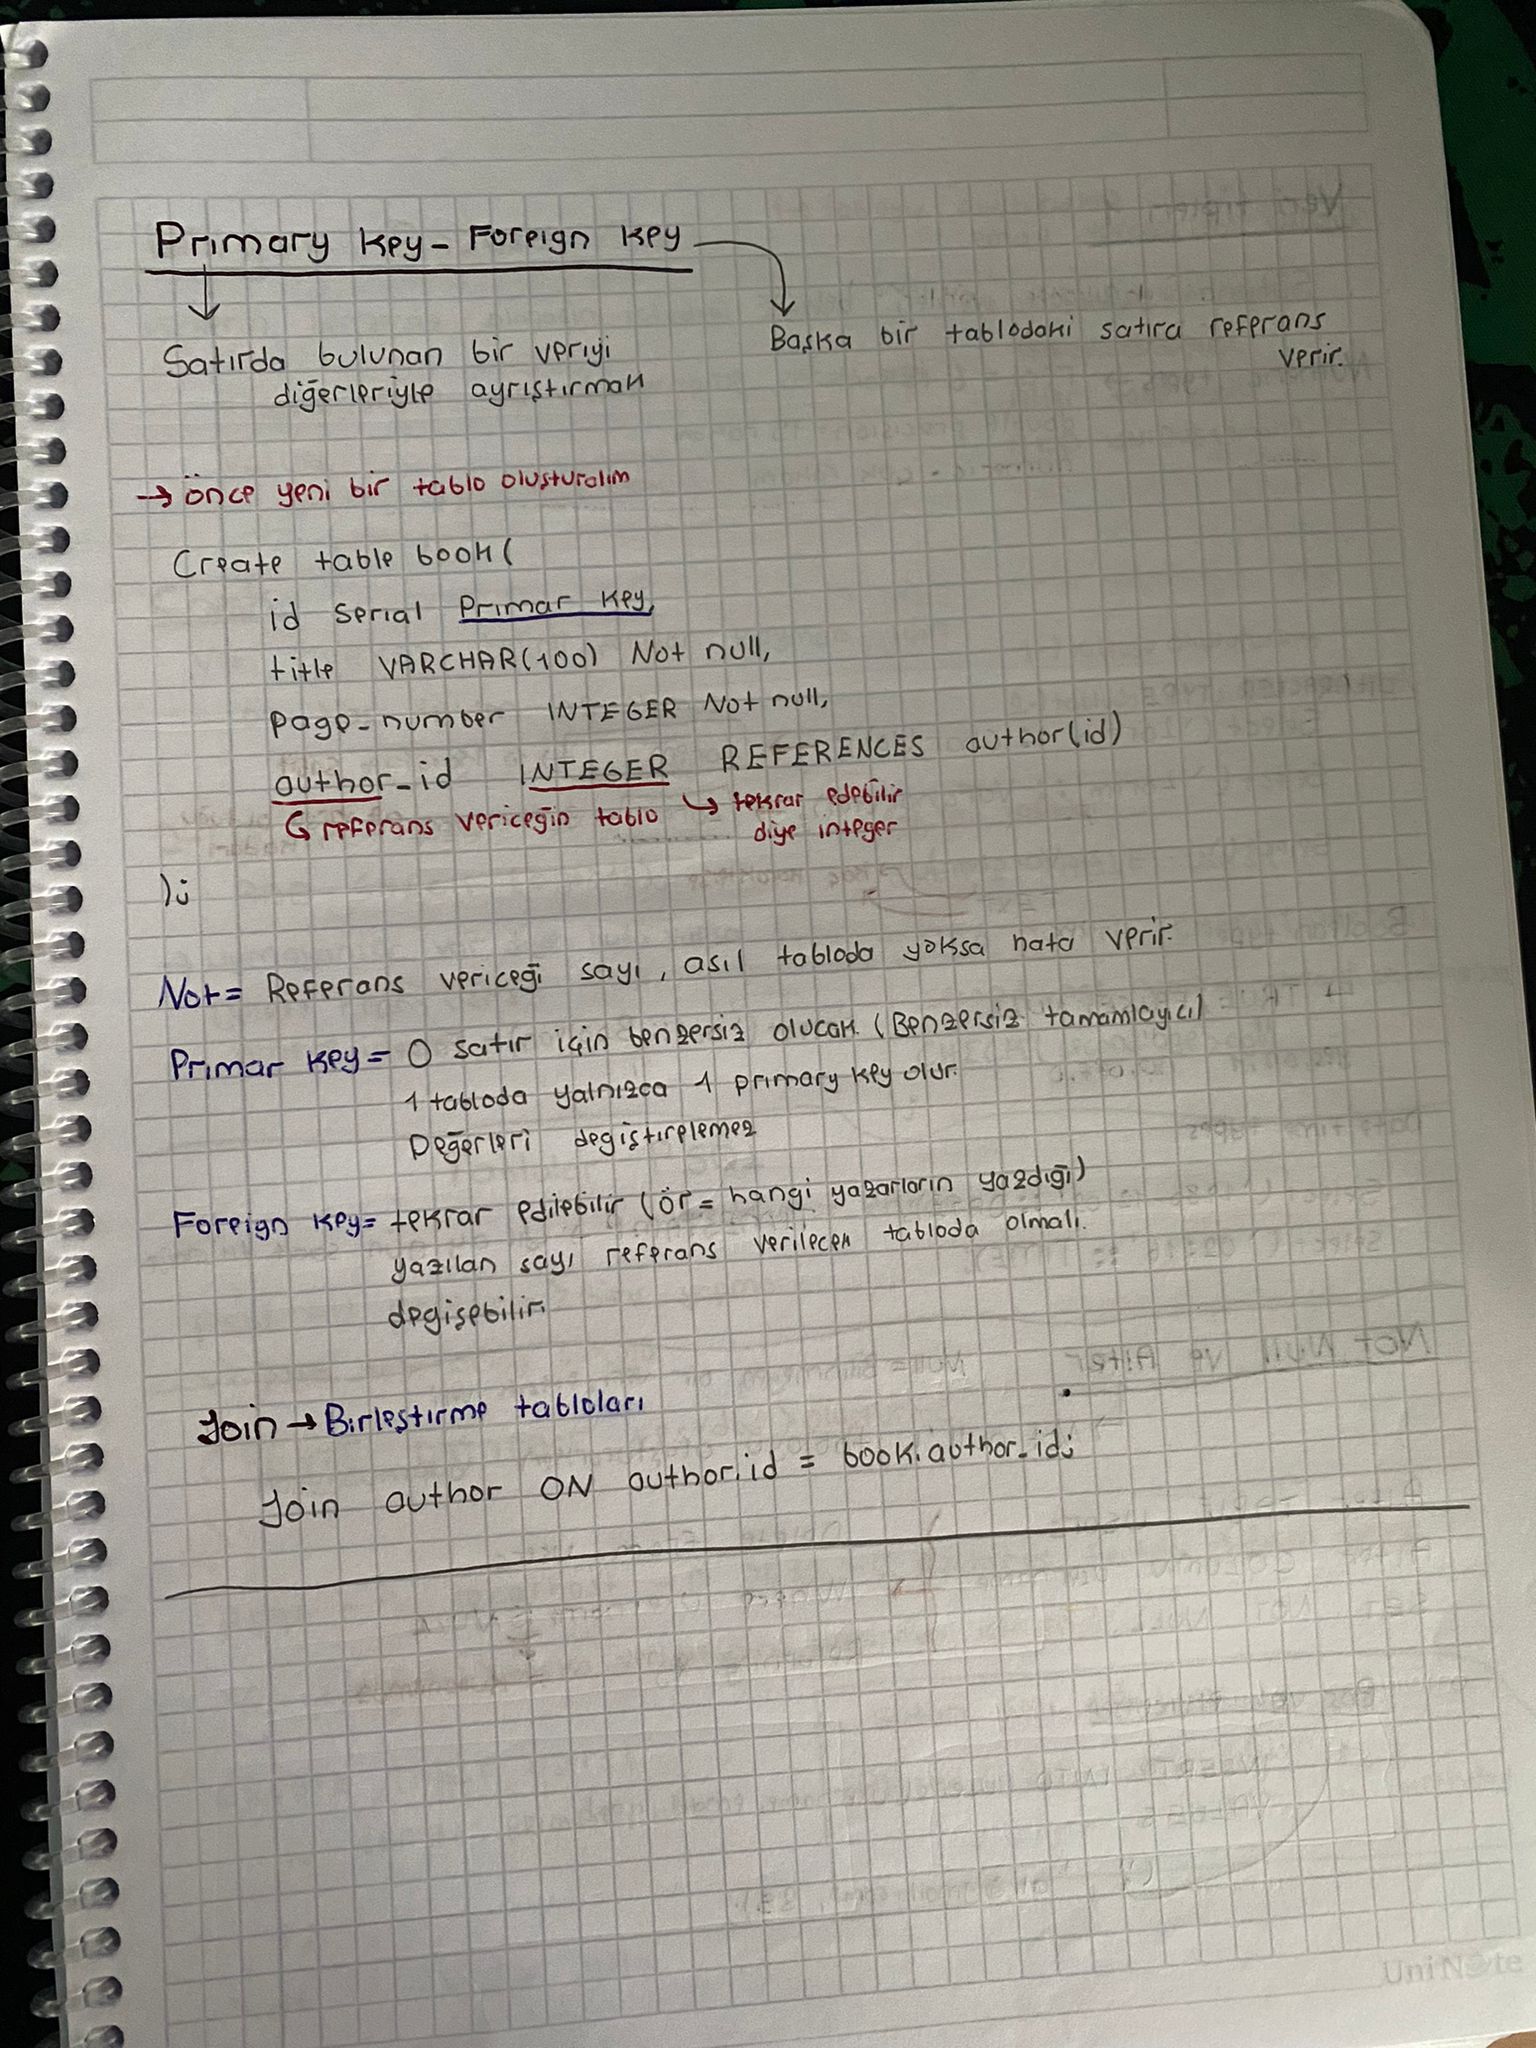 Primary Key - Foreign Key
Satırda bulunan bir veriyi
diğerleriyle ayrıştırmak
Başka bir tablodaki satıra referans
verir.
→ önce yeni bir tablo oluşturalım
Create table book(
id serial Primar Key,
title VARCHAR(100) Not null,
page_number INTEGER Not null,
author_id INTEGER REFERENCES author(id)
↳ referans vericeğin tablo ↳ tekrar edebilir
diye integer
);
Not = Referans vericeği sayı, asıl tabloda yoksa hata verir.
Primar Key = O satır için benzersiz olucak. (Benzersiz tamamlayıcı)
1 tabloda yalnızca 1 primary key olur.
Değerleri degiştirelemez
Foreign Key = tekrar edilebilir (ör = hangi yazarların yazdığı)
yazılan sayı referans verilecek tabloda olmalı.
degişebilir.
Join → Birleştirme tabloları
Join author ON author.id = book.author_id;
UniNote